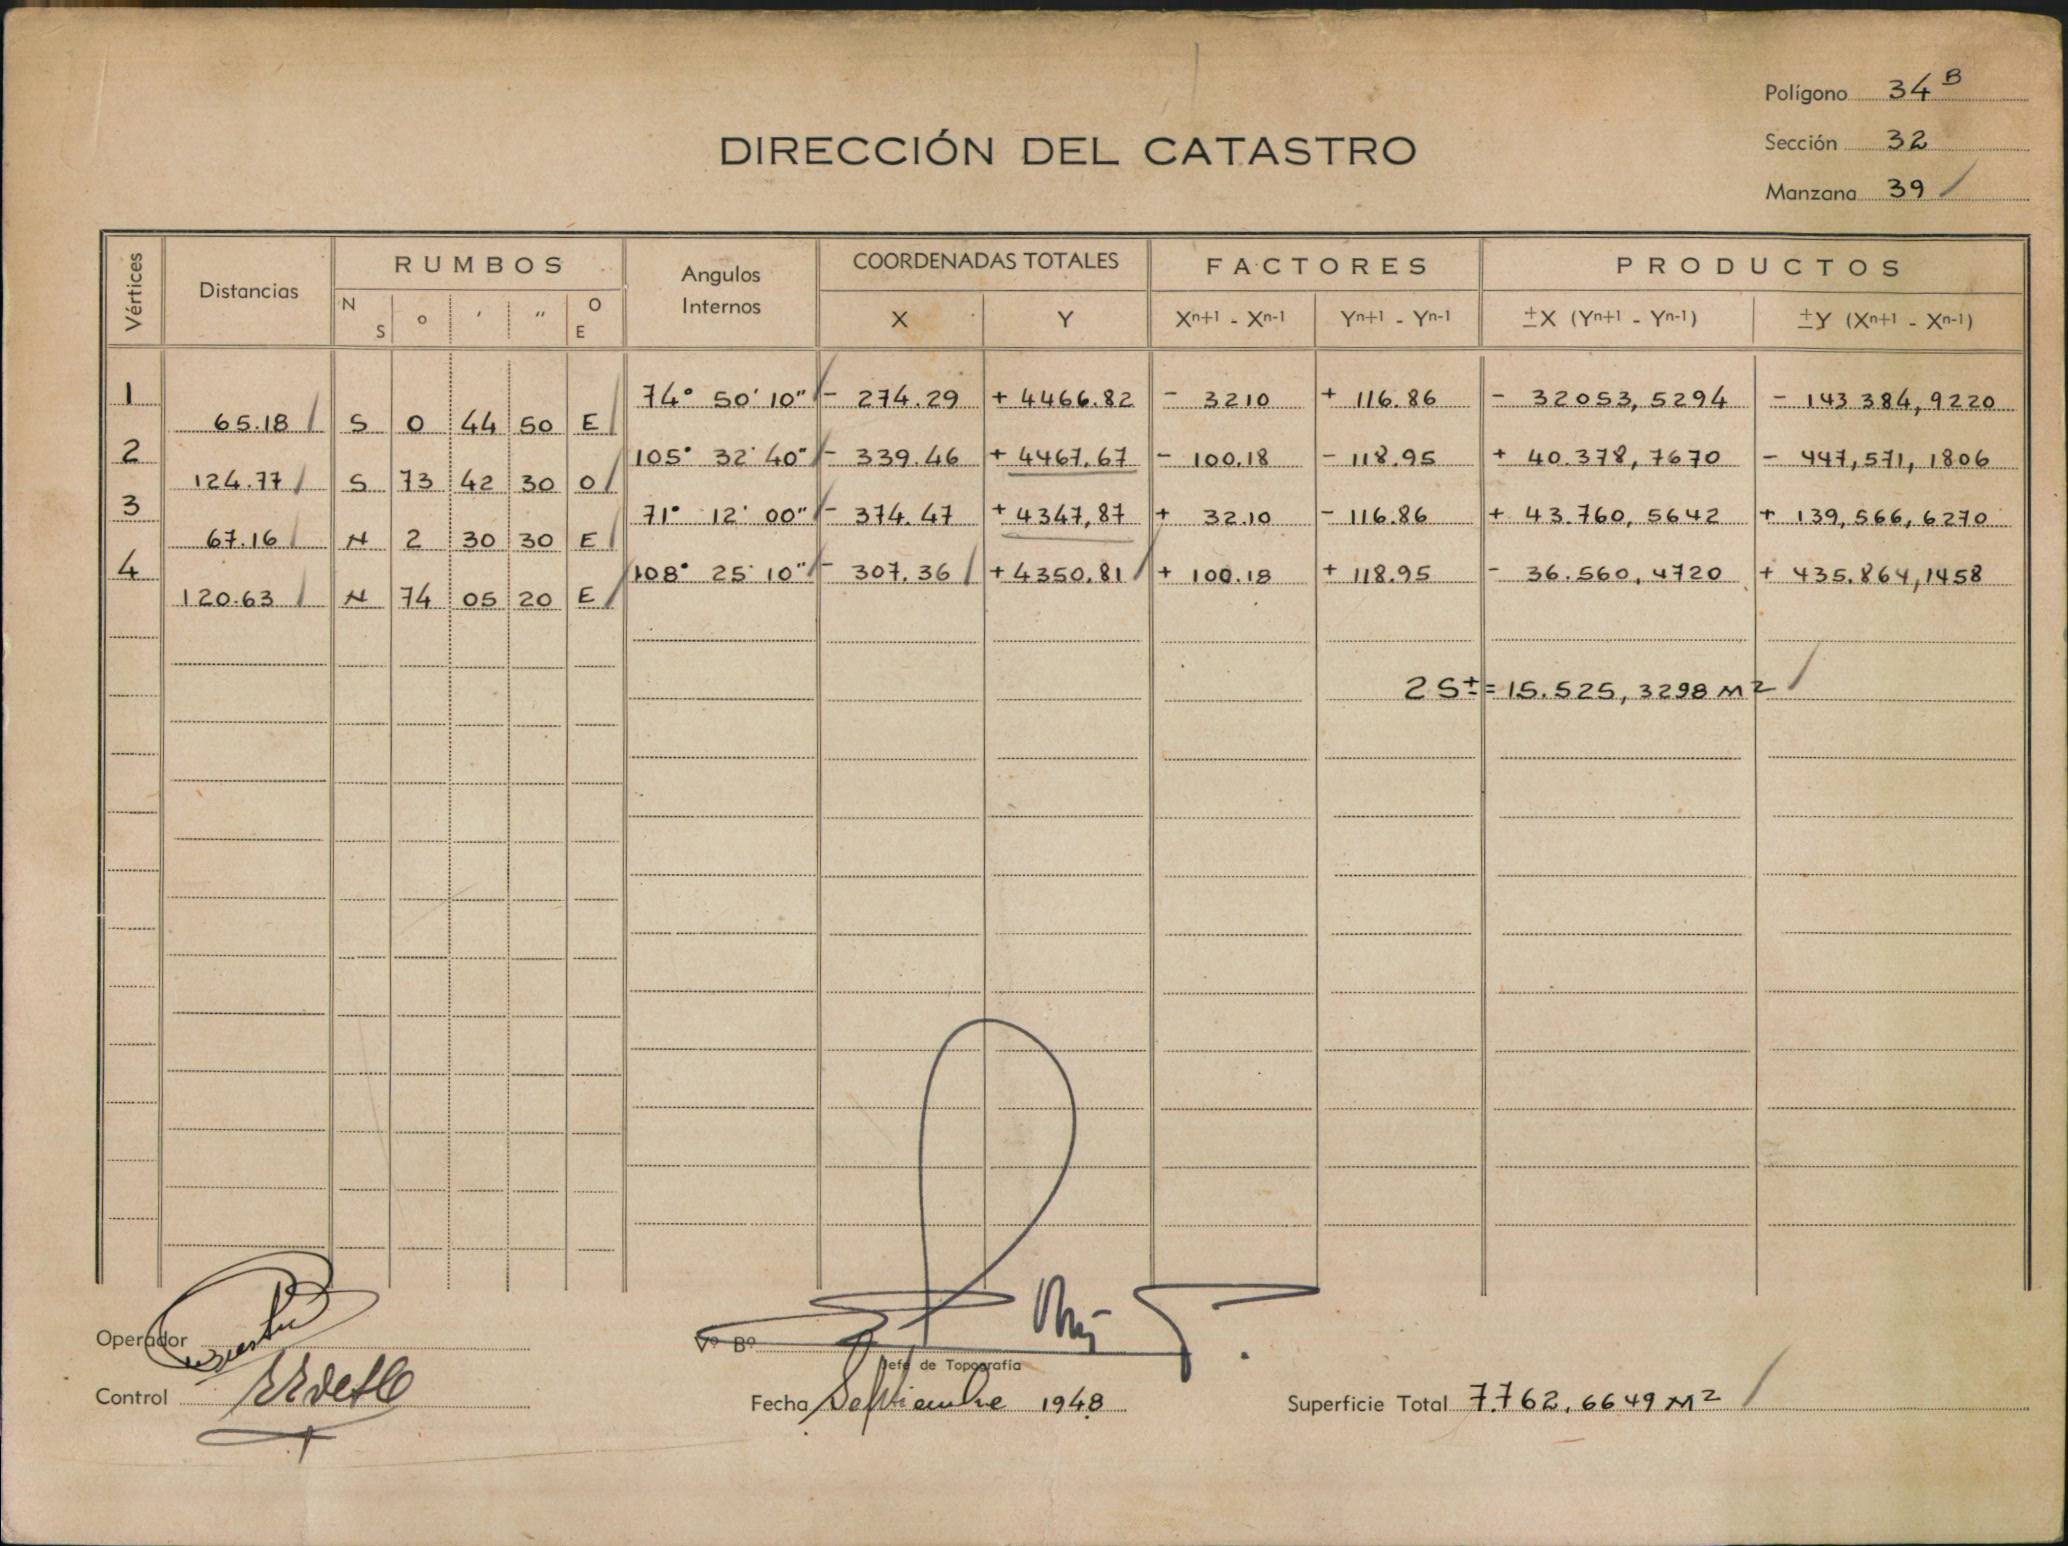 Polígono 34 B
DIRECCIÓN DEL CATASTRO
Sección 32
Manzana 39 /
Vértices
Distancias
RUMBOS
Angulos Internos
COORDENADAS TOTALES
FACTORES
PRODUCTOS
N S ° ' " O E
X Y
Xn+1 - Xn-1 Yn+1 - Yn-1
±X (Yn+1 - Yn-1) ±Y (Xn+1 - Xn-1)
1 74° 50' 10" - 274.29 + 4466.82 - 3210 + 116.86 - 32053,5294 - 143384,9220
65.18 S 0 44 50 E
2 105° 32' 40" - 339.46 + 4467,67 - 100.18 - 118.95 + 40.378,7670 - 447,571,1806
124.77 S 73 42 30 O
3 71° 12' 00" - 374.47 + 4347,87 + 32.10 - 116.86 + 43.760,5642 + 139,566,6270
67.16 N 2 30 30 E
4 108° 25' 10" - 307.36 + 4350.81 + 100.18 + 118.95 - 36.560,4720 + 435.864,1458
120.63 N 74 05 20 E
2 S ± = 15.525,3298 M2
Operador
Vº Bº
Jefe de Topografía
Control
Fecha Septiembre 1948
Superficie Total 7.762,6649 M2